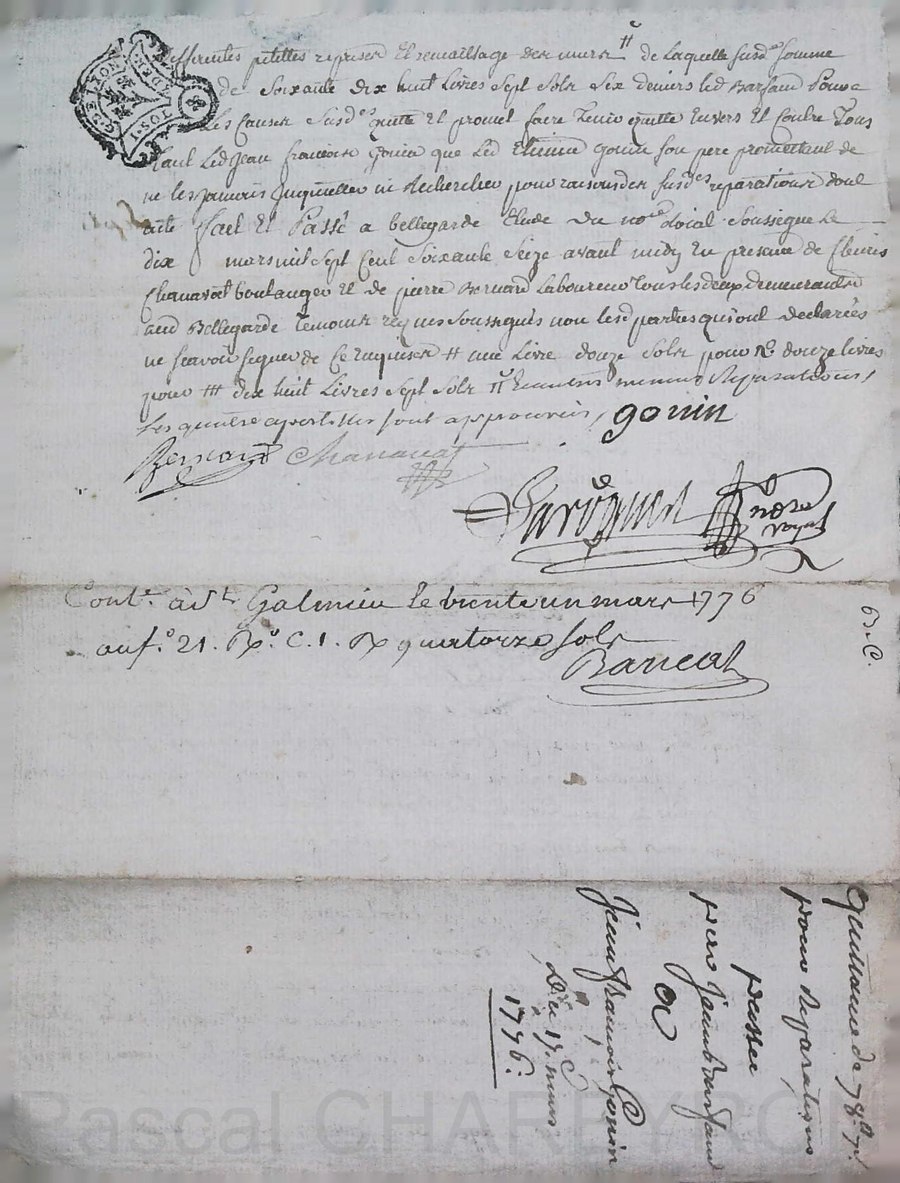 differentes petittes reprises Et remaillage des murs # de Laquelle susd.e somme
de Soixante dix huit Livres Sept Sols Six deniers led Barjaud pour
Les Causes Susd.es quitte Et promet faire Tenir quitte Envers Et Contre Tous
tant Led Jean françois Gonin que Led Etienne gonin son pere promettant de
ne les jamais inquietter ni Rechercher pour raison des susd.es reparations dont
acte fait Et Passé a bellegarde Etude du no.re Roial Soussigné Le
dix mars mil Sept Cent Soixante Seize avant midy En presence de
Chanavat boulanger Et de pierre Bernard Laboureur Tous les deux demeurants
aud Bellegarde Temoins requis Soussignés non les d parties qui ont declarées
ne scavoir signer de Ce Enquises # une Livre douze Sols pour douze livres
pour ## dix huit Livres Sept Sols # reparations,
Les quatre apostilles sont approuvées, gonin
Bernard Chanavat
no.re royal
Cont.e à St Galmier le trente un mars 1776
au f.o 21. R.o C. 1. R quatorze sols
Bancat
B. C.
Quittance de 78.# 7.s
pour Reparations
passée
par Jean Barjaud
a
Jean françois Gonin
Du 17. mars
1776.
Pascal CHAREYRON